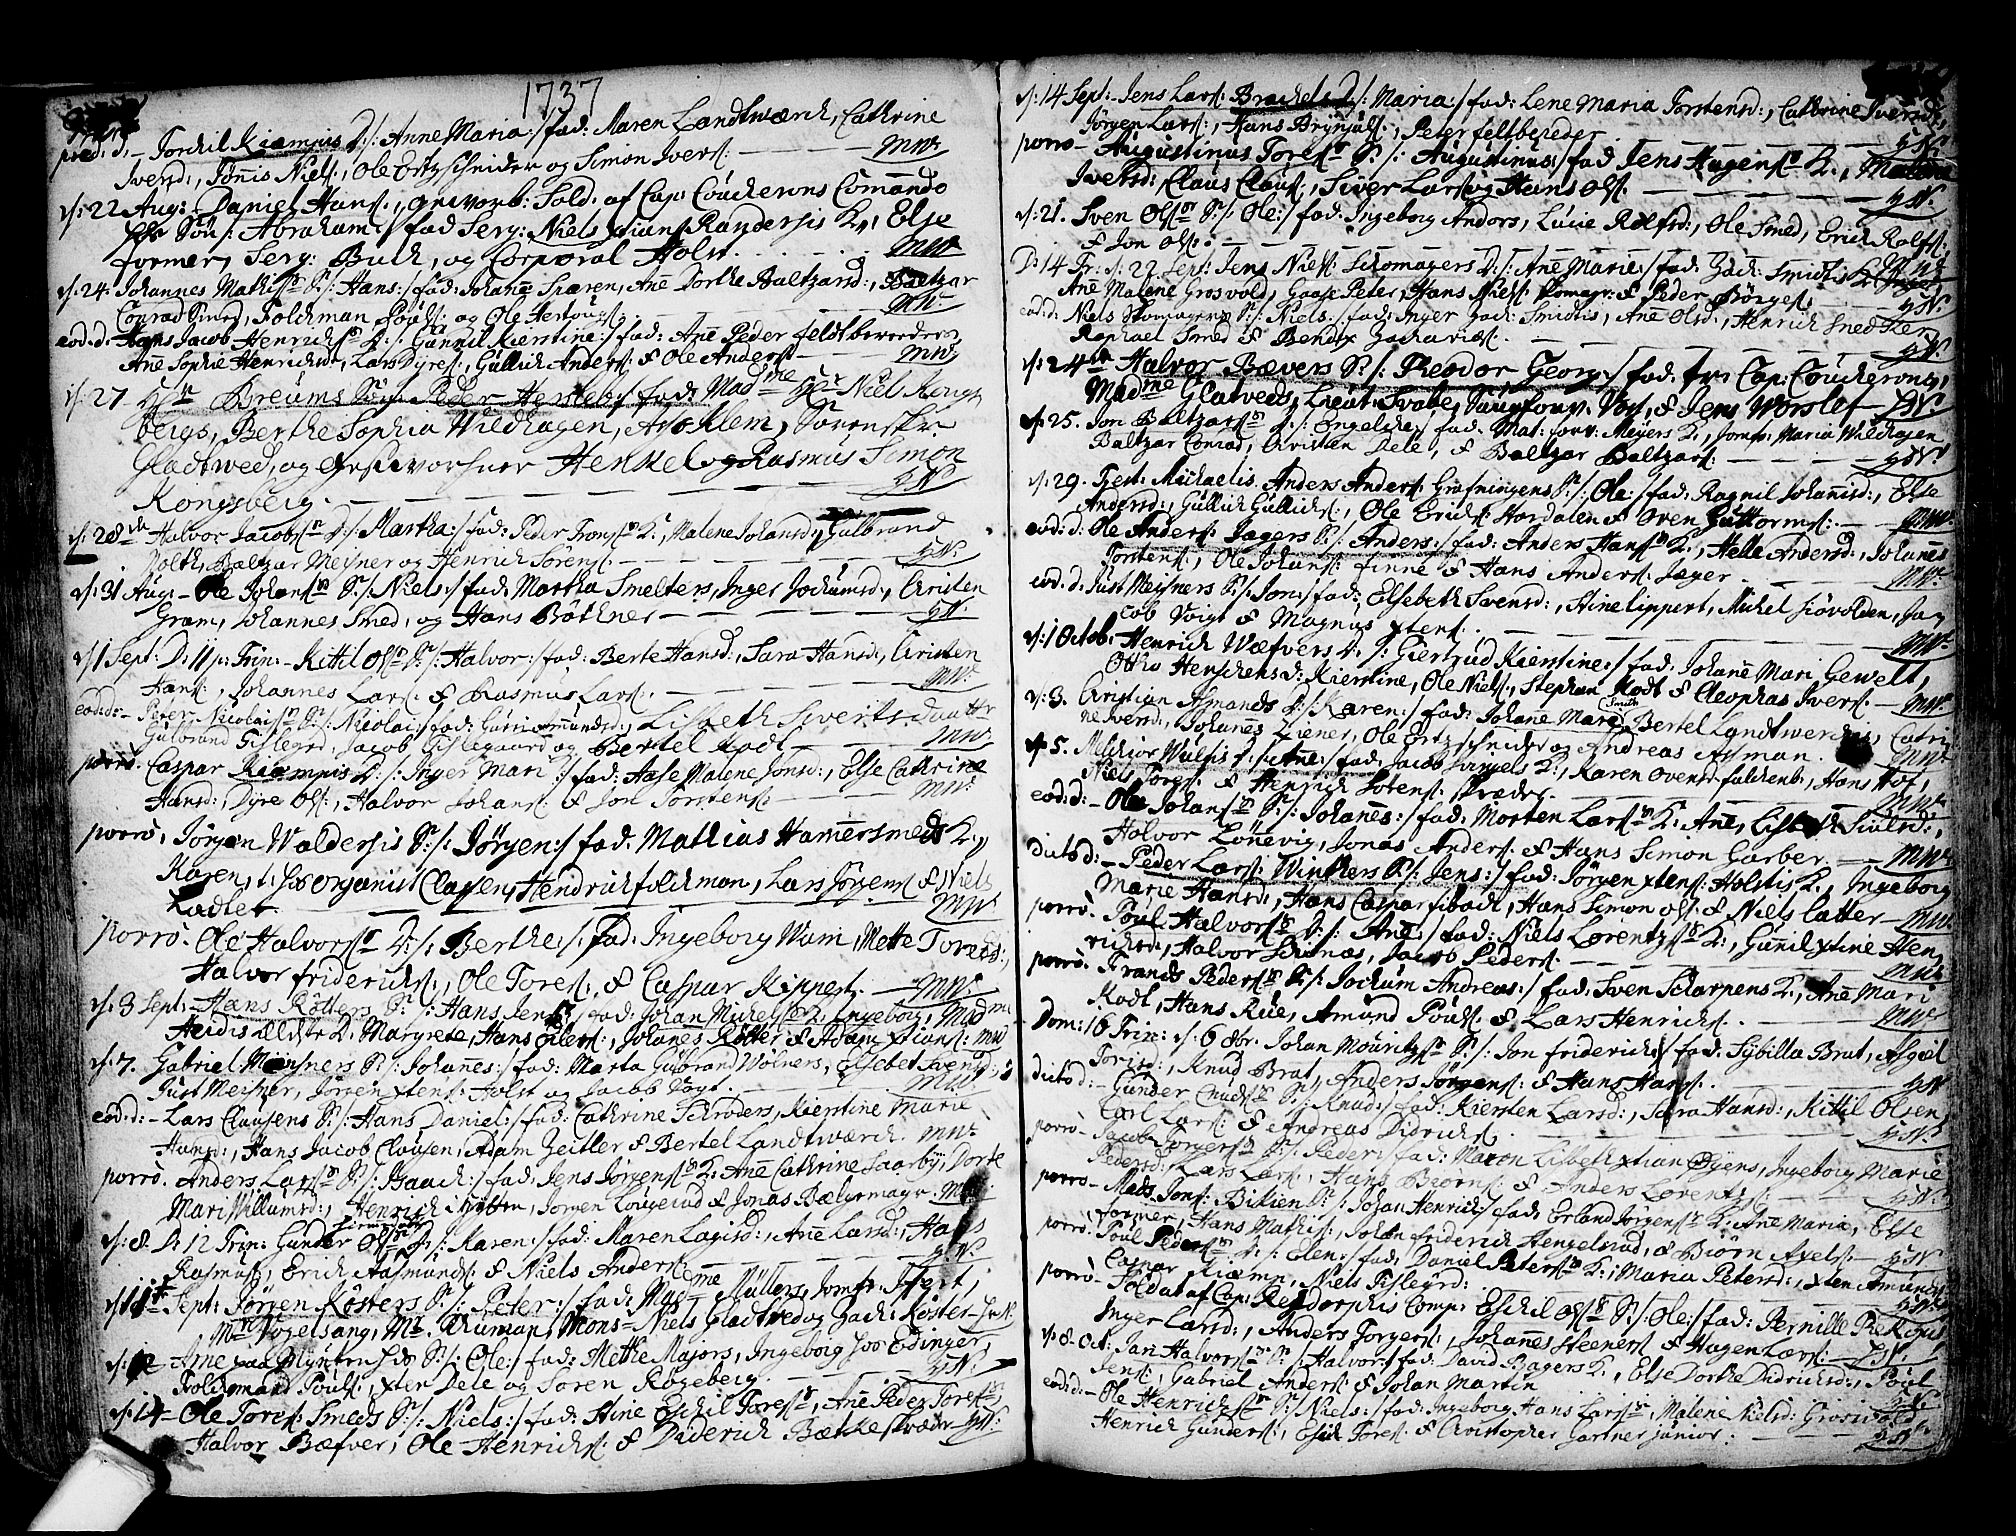 1737
præd. d. - Torkil Kiempis D:/: Anne Maria:/ fad: Maren Landtværck, Cathrine
Iversd:, Tønnis Niels:, Ole Ertzschneider og Simon Ivers: MW.
d: 22 Aug: Daniel Hans:, gevorb: Sold. af Cap: Coucherons Comando
Søn/: Abraham:/ fad Serg: Niels xtians Randersis K:, Else
former, Serg: Buch, og Corporal Holst. MW
d: 24. Johannes Mathis: S:/: Hans:/ fad: Johañe Skæren, Añe Dorthe Baltzarsd:, Baltzar
Conrad Smed, Folchman Pouls: og Ole MW
eod: d. Hans Jacob Henrichs: D:/: Gunnil Kierstine:/ fad: Añe Peder Feldtbereeders
Añe Sophie Henrichsd:, Lars Dyres:, Gullick Anders: & Ole Anders: MW
d: 27 Hr Breums Søn Peder Hersleb:/ fad: Madme Niels Kongs
bergs, Berthe Sophia Wildhagen, Klem, Sorenskr:
Gladtwed, og Henkel og Rasmus Simon
Kongsberg. HN.
d: 28de Halvor Jacobs: D:/: Martha:/ fad: Peder Trons: K:, Malene Johansd:, Gulbrand
Holth, Baltzar Meisner og Henrich Sørens: HN.
d: 31 Aug: - Ole Johans: S:/: Niels:/ fad: Martha Smelters, Inger Jochumsd:, Christen
Gram, Johannes Smed, og Hans Bøthner HN.
d: 1 Sept: D: 11 p: Trin: - Kittil Ols: S:/: Halvor:/ fad: Berte Hansd:, Sara Hansd:, Christen
Hans:, Johannes Lars: & Rasmus Lars: MW.
eod: d: - Peter Nicolais: S:/: Nicolai:/ fad: Guri Amundsd:, Lisbeth Siverts daatter
Gulbrand Gislegrd, Jacob Gislegaard og Bertel Kodt MW
porrò. Caspar Kiempis D:/: Inger Mari:/ fad: Aase Malene Jonsd:, Else Cathrine
Hansd:, Dyre Ols:, Halvor Johans: & Jon Torstens: MW.
porrò, Jørgen Waldersis S:/: Jørgen:/ fad: Mathias Hamersmeds K:,
Karen, Organist Classen, Hendrich Folchman, Lars Jørgens: & Niels
Ladter. MW
porrò. Ole Halvors: D:/: Berthe:/ fad: Ingeborg Wam, Mette Toresd:,
Halvor Friderichs:, Ole Tores: & Caspar Kippert. MW
d: 3 Sept: - Hans Røtters S:/: Hans Jens:/ fad: Johan Michels: K: Ingeborg, Madme
Heidis ældste D: Margrete, Hans Eilers:, Johañes Røtter & Adam xtians: MW
d: 7. Gabriel Meisners S:/: Johañes:/ fad: Marta Gulbrand Wolners, Elsebet Svensd:,
Just Meisner, Jørgen xtens: Holst og Jacob Vogt. MW
eod: d: - Lars Clausens S:/: Hans Daniel:/ fad: Cathrine Schrøders, Kierstine Marie
Hansd:, Hans Jacob Clausen, Adam Zeitler & Bertel Landtværck. MW
porrò. Anders Lars: S:/: Isaach:/ fad: Jens Jørgens: K: Añe Cathrine Saasby, Dorte
Mari Willumsd:, Henrich Hytten, Jørgen Lougerud & Jonas Bælgemagr. MW
d: 8. D: 12 Trin: Gunder Ols: D:/: Karen:/ fad: Maren Lagisd:, Añe Larsd:, Hans
Rasmus:, Erich Aasmunds: & Niels Anders: HN
d: 11te Sept: Jørgen Kosters S:/: Peter:/ fad: Madme Müllers, Jomfr: Hiort,
Mr Vogelsang, Mr. Neuman, Mons: Niels Gladtved og Zach: Koster HN
d: 12 Arne paa Myntens S:/: Ole:/ fad: Mette Majors, Ingeborg hos Edinger
Foldmand Pouls:, xten Dele og Søren Rogeberg. HN.
d: 14 - Ole Tores: Smeds S:/: Niels:/ fad: Stine Eschil Tores:, Añe Peder Tores:
Halvor Bæfver, Ole Henrichs: & Diderich Bække HN.
d: 14 Sept: - Jens Lars: Brachels D:/: Maria:/ fad: Lene Maria Torstensd:, Cathrine Iversd:,
Jørgen Lars:, Hans Brynjuls:, Peter Feltbereder HN
porro - Augustinus Tores: S:/: Augustinus:/ fad Jens Hagens: K:, Malene
Iversd: Claus Claus:, Siver Lars: og Hans Ols: HN.
d: 21. Sven Ols: S:/: Ole:/ fad: Ingeborg Andors, Lucie Rolfsd:, Ole Smed, Erich Rolfs:
& Jon Ols: HN.
D: 14 Tr: d: 22 Sept: Jens Niels: Skomagers D:/: Añe Marie:/ fad: Zach: Smidtis K: Inger,
Añe Malene Grosvold, Gaase Peter, Hans Niels: Skomagr: & Peder Børges: HN.
eod: d: Niels Skomagers S:/: Niels:/ fad: Inger Zach: Smidtis, Añe Olsd:, Henrich Snedker
Raphael Smed & Bendix Zacharias: HN.
d: 24de Halvor Bævers S:/: Theodor Georg:/ fad: Fr: Cap: Coucherons,
Madme Glatveds, Lieut: Svabe, Vogt, & Jens Worslef HN.
d: 25. Jon Baltzars: D:/: Engelche:/ fad: Mat: forv: Meyers K:, Jomfr: Maria Wildhagen
Baltzar Conrad, Christen Dele, & Baltzar Baltzars: HN.
d: 29. Fest: Michaelis. Anders Anders: Grafningens S:/: Ole:/ fad: Ragnil Johañisd:, Else
Andersd:, Gullich Gullichs:, Ole Erichs: Hordalen & Oven Guttorms: MW.
eod: d: Ole Anders: Jagers S:/: Anders:/ fad: Anders Hans: K:, Helle Andersd:, Johañes
Torstens:, Ole Johans: Finne & Hans Anders: Jæger. MW.
eod: d: Just Meisners S:/: Jon:/ fad: Elsebeth Svensd:, Stine Lippert, Michel Skovolden, Ja-
cob Voigt & Magnus xtens: MW.
d: 1 Octob: Henrich Wæfvers D:/: Giertrud Kierstine:/ fad: Johañe Mari Gewelt,
Otto Henschens D: Kierstine, Ole Niels:, Stephan Kodt & Cleophas Ivers: MW.
d: 3. Christian Asmands D:/: Karen:/ fad: Johane Mari Smith Bertel Landtwercks, Catri-
ne Iversd:, Johañes Ziener, Ole Ertzschneider og Andreas Asman. MW.
d: 5. Melchior Wulfis D:/: Añe:/ fad: Jacob Svingels K:, Karen Ovensd: Falchenb:, Hans Hof,
Niels Torgrs: & Henrich Sørens: Skræder. MW.
eod: d: - Ole Johans: S:/: Johañes:/ fad: Morten Lars: K: Añe, Lisbeth Siulsd:,
Halvor Lønnevig, Jonas Anders: & Hans Simon Garber. MW.
dicto d: - Peder Lars: Winthers S:/: Jens:/ fad: Jørgen xtens: Holstis K:, Ingeborg
Marie Hansd:, Hans Caspar Fibach, Hans Simon Ols: & Niels Latter MW.
porrò. Poul Halvors: D:/: Añe:/ fad: Niels Lorentz: K:, Gunil xtine Hen-
richsd:, Halvor Svenæs, Jacob Peders: MW.
porrò. Frands Peders: S:/: Jochum Andreas:/ fad: Sven Scharpens K:, Añe Mari
Kodt, Hans Rue, Amund Pouls: & Lars Henrichs: MW.
Dom: 16 Trin: d: 6 8br. Johan Mouritz: S:/: Jon Friderich:/ fad: Sybilla Brat, Asgiel
Torisd:, Knud Brat, Anders Jørgens: & Hans Hans: HN
dicto d: - Gunder Cnuds: S:/: Knud:/ fad: Kiersten Larsd:, Sara Hansd:, Kittil Olsen,
Carl Lars: & Andreas Didrichs: HN.
porrò - Jacob Torgers: S:/: Peder:/ fad: Maren Lisbeth xtian Øyens, Ingeborg Marie
Pedersd: Lars Lars:, Hans Biørns: & Anders Lorentz: HN.
porrò - Mads Jons: Bikien S:/: Johan Henrich:/ fad: Erland Jørgens: K: Añe Maria, Else
Former, Hans Mathis:, Johan Friderich Hengelsrud, & Biørn Axels: HN
porrò - Poul Peders: D:/: Elen:/ fad: Daniel Peters: K:, Maria Petersd:, xten Amunds:
Caspar Kiæmp, Niels Gislegrd: HN.
porrò - Soldat af Cap: Reidorphis Comp: Eschil Ols: S:/: Ole:/ fad: Pernille
Inger Larsd:, Anders Torgers:, Johañes Steeners & Hagen Lars: HN.
d: 8. Oct: Jan Halvors: S:/: Halvor:/ fad: David Bagers K:, Else Dorthe Didrichsd:, Poul
Jens:, Gabriel Anders: & Johan Martin HN.
eod: d: - Ole Henrichs: S:/: Niels:/ fad: Ingeborg Hans Lars:, Malene Nielsd: Grosvold
Henrich Gunders:, Eschil Tores: & Christopher Gartner junior: HN.